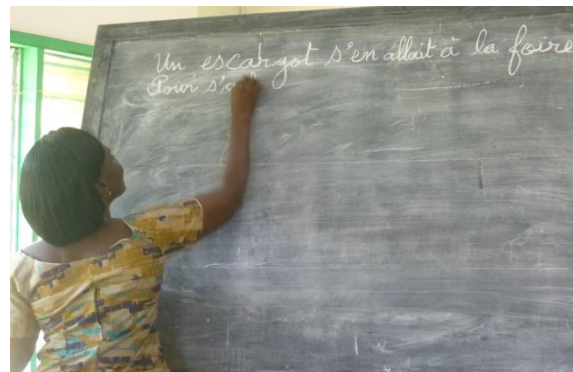 Un escargot s'en allait à la foire
Pour s'a